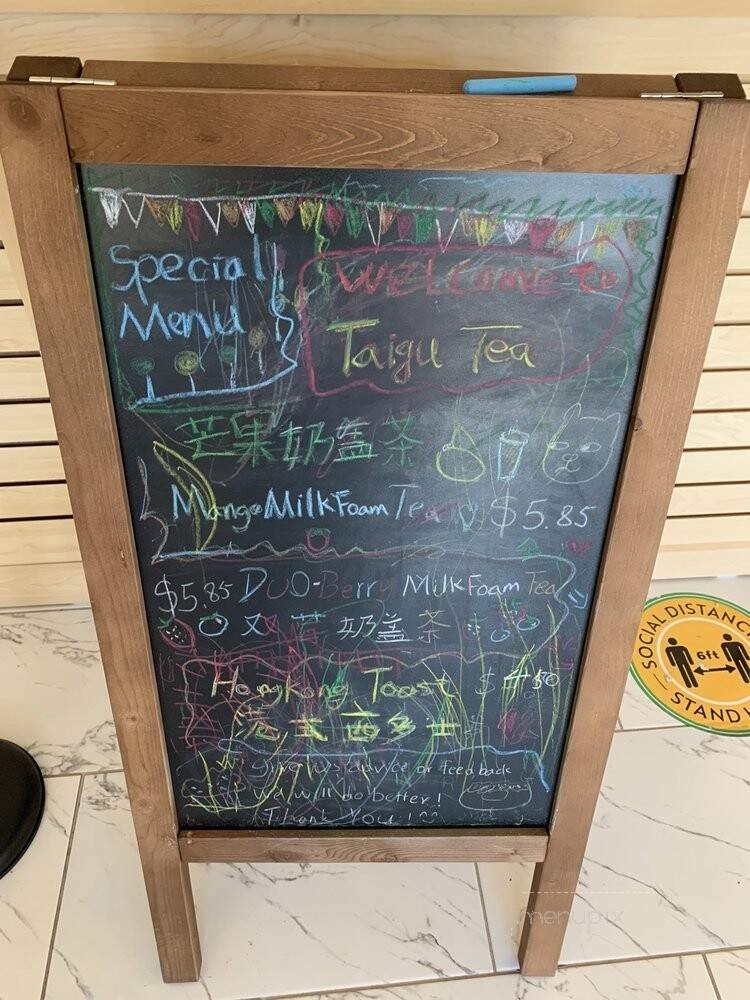 Special
Menu
Welcome to
Taigu Tea
芒果奶盖茶
Mango Milk Foam Tea $5.85
$5.85 DUO-Berry Milk Foam Tea
双莓奶盖茶
HongKong Toast $4.50
港式西多士
give us advice or feedback
we will do better!
Thank You!^^
SOCIAL DISTANC
6ft
STAND H
menupix